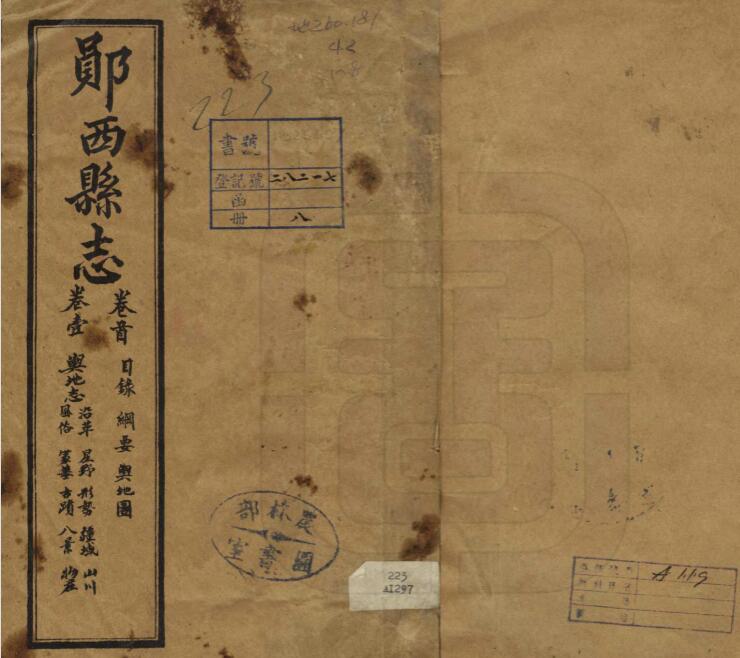 鄖西縣志
卷首 目錄 綱要 輿地圖
卷壹 輿地志
沿革 星野 形勢 疆域 山川
風俗 冢墓 古蹟 八景 物產
地260.181
42
223
書號
登記號 二八二一七
函
冊 八
農林部
圖書室
223
A1297
A119